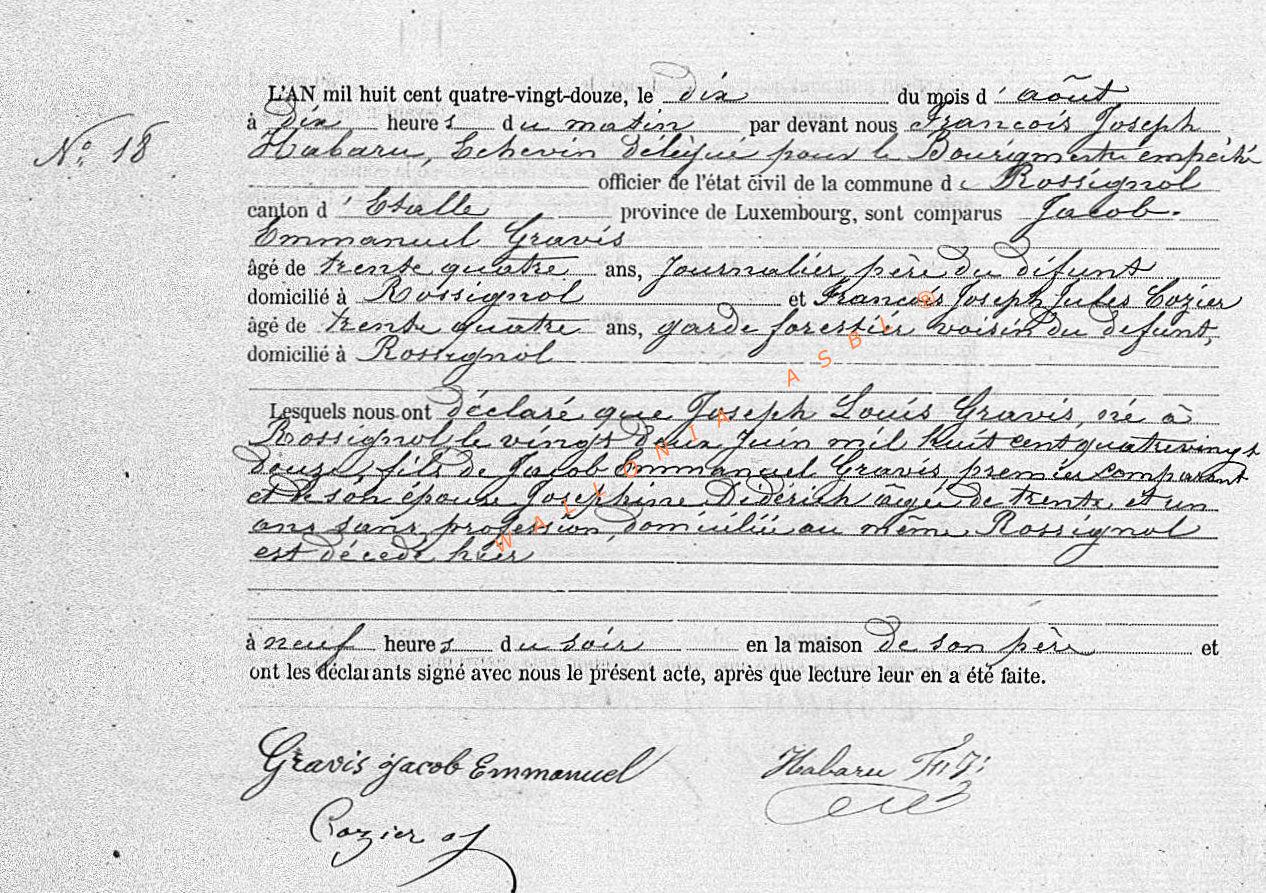 L'AN mil huit cent quatre-vingt-douze, le dix du mois d'août
N° 18
à dix heures du matin par devant nous François Joseph
Habaru, Echevin délégué pour le Bourgmestre empêché
officier de l'état civil de la commune de Rossignol
canton d'Etalle province de Luxembourg, sont comparus Jacob
Emmanuel Gravis
âgé de trente quatre ans, journalier, père du défunt
domicilié à Rossignol et François Joseph Jules Cozier
âgé de trente quatre ans, garde forestier voisin du defunt,
domicilié à Rossignol
Lesquels nous ont déclaré que Joseph Louis Gravis, né à
Rossignol, le vingt deux Juin mil huit cent quatrevingt
douze, fils de Jacob Emmanuel Gravis, premier comparant
et de son épouse Josephine Didérich âgée de trente et un
ans sans profession, domiciliée au même Rossignol
est décédé hier
à neuf heures du soir en la maison de son père et
ont les déclarants signé avec nous le présent acte, après que lecture leur en a été faite.
Gravis Jacob Emmanuel Habaru
Cozier
WALLONIA ASBL ©